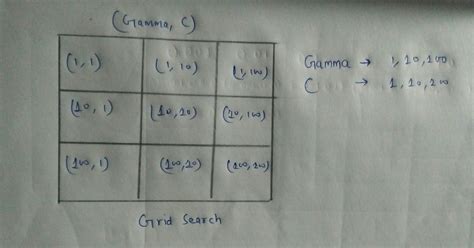 (Gamma, C)
(1,1) (1,10) (1,100)
(10,1) (10,10) (10,100)
(100,1) (100,10) (100,100)
Gamma → 1,10,100
C → 1,10,100
Grid Search